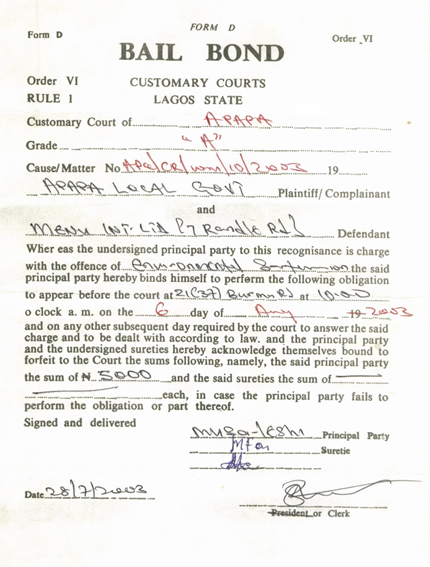 FORM D
Form D
Order VI
BAIL BOND
Order VI CUSTOMARY COURTS
RULE 1 LAGOS STATE
Customary Court of APAPA
Grade "A"
Cause/Matter No 10/2003 19
APAPA LOCAL GOVT Plaintiff/Complainant
and
MENU INT. LTD (7 Randle Rd) Defendant
Wher eas the undersigned principal party to this recognisance is
charge with the offence of Environmental the said
principal party hereby binds himself to perform the following obligation
to appear before the court at 21(37) Burma Rd at 10:00
o clock a. m. on the 6 day of Aug 19 2003
and on any other subsequent day required by the court to answer the said
charge and to be dealt with according to law. and the principal party
and the undersigned sureties hereby acknowledge themselves bound to
forfeit to the Court the sums following, namely, the said principal party
the sum of ₦ 5000 and the said sureties the sum of
each, in case the principal party fails to
perform the obligation or part thereof.
Signed and delivered
Principal Party
Suretie
Date 28/7/2003
President or Clerk